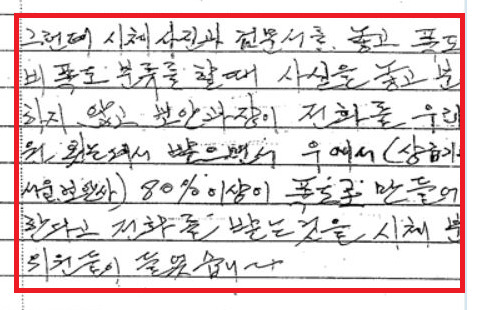 그런데 시체 사진과 검문서를 놓고 폭도
비폭도 분류를 할때 사실을 놓고 분
하지 않고 보안과장이 전화를 우리
위원는데서 받으면서 우에서 (상급기
서울 보안사) 80% 이상이 폭도로 만들어
한다고 전화를 받는것을 시체 분
위원들이 들었습니다